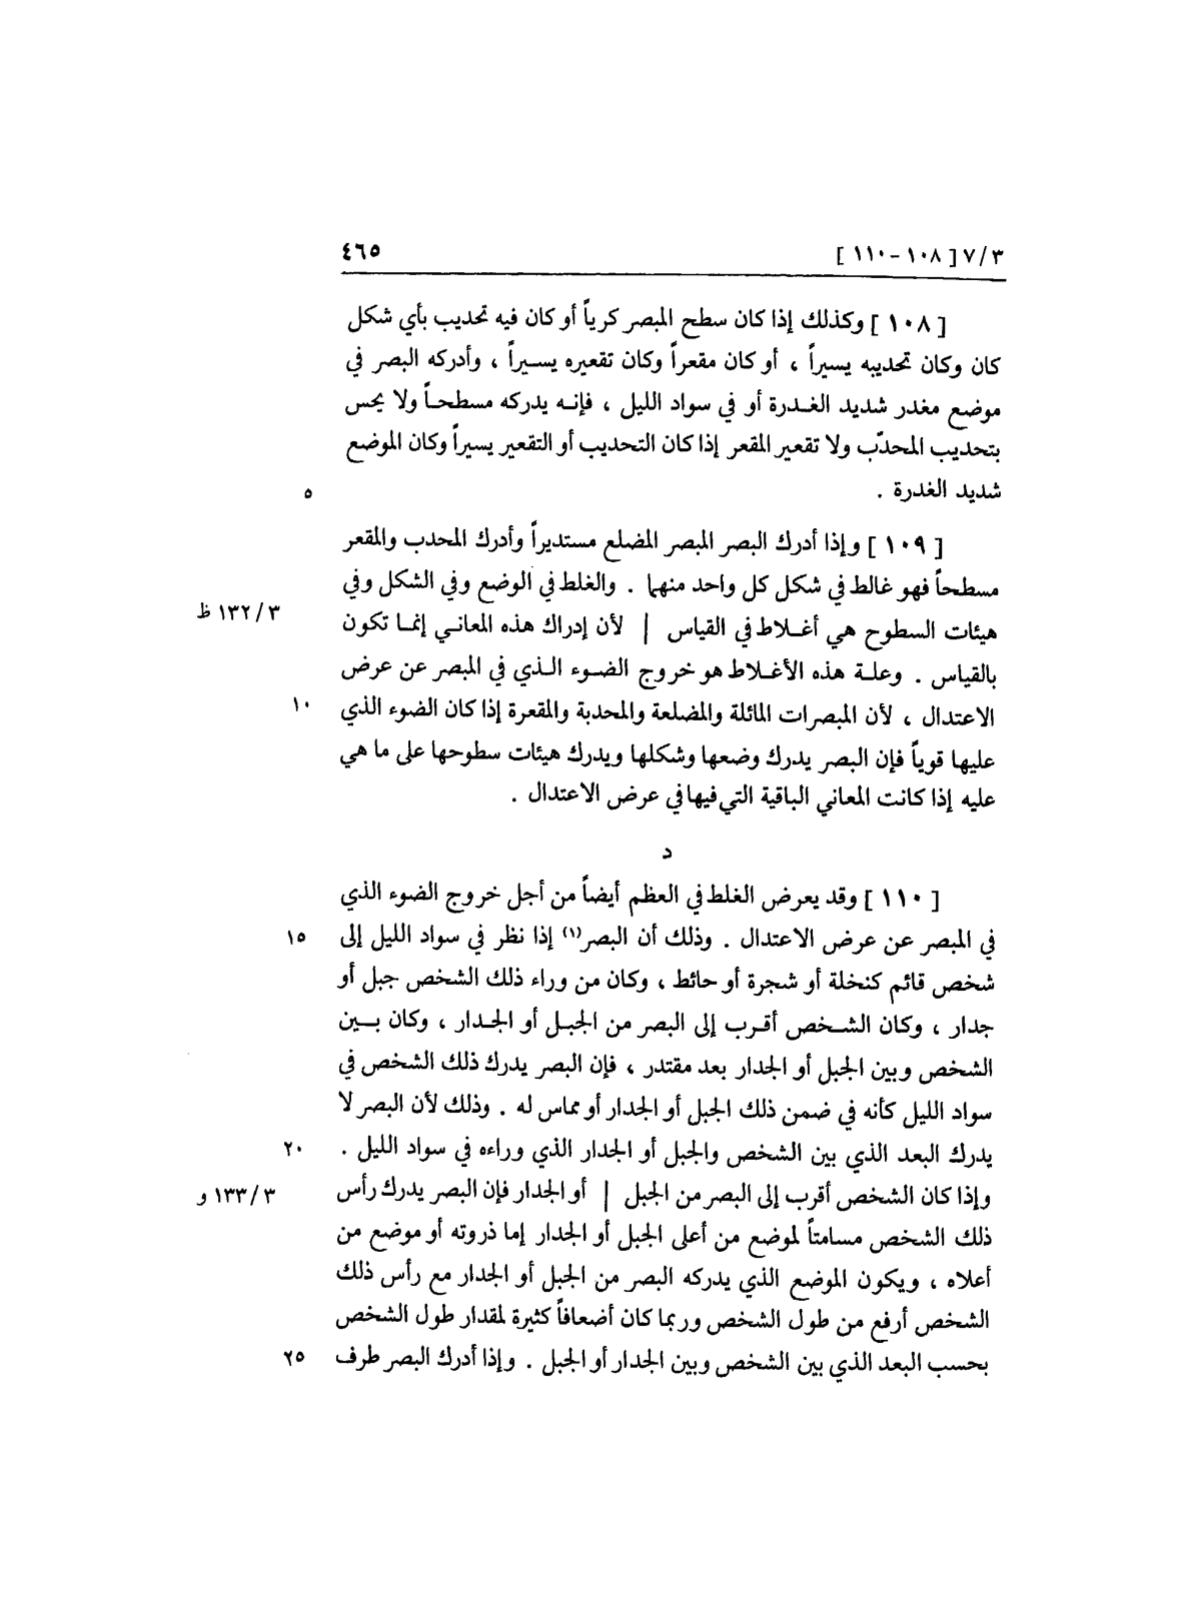 ٧/٣ [ ١٠٨ - ١١٠ ] ٤٦٥
[ ١٠٨ ] وكذلك إذا كان سطح المبصر كرياً أو كان فيه تحديب بأي شكل
كان وكان تحديبه يسيراً ، أو كان مقعراً وكان تقعيره يسيراً ، وأدركه البصر في
موضع مغدر شديد الغدرة أو في سواد الليل ، فإنه يدركه مسطحاً ولا يحس
بتحديب المحدّب ولا تقعير المقعر إذا كان التحديب أو التقعير يسيراً وكان الموضع
شديد الغدرة . ٥
[ ١٠٩ ] وإذا أدرك البصر المبصر المضلع مستديراً وأدرك المحدب والمقعر
مسطحاً فهو غالط في شكل كل واحد منهما . والغلط في الوضع وفي الشكل وفي
هيئات السطوح هي أغلاط في القياس | لأن إدراك هذه المعاني إنما تكون ٣/١٣٢ ظ
بالقياس . وعلة هذه الأغلاط هو خروج الضوء الذي في المبصر عن عرض
الاعتدال ، لأن المبصرات المائلة والمضلعة والمحدبة والمقعرة إذا كان الضوء الذي ١٠
عليها قوياً فإن البصر يدرك وضعها وشكلها ويدرك هيئات سطوحها على ما هي
عليه إذا كانت المعاني الباقية التي فيها في عرض الاعتدال .
د
[ ١١٠ ] وقد يعرض الغلط في العظم أيضاً من أجل خروج الضوء الذي
في المبصر عن عرض الاعتدال . وذلك أن البصر(١) إذا نظر في سواد الليل إلى ١٥
شخص قائم كنخلة أو شجرة أو حائط ، وكان من وراء ذلك الشخص جبل أو
جدار ، وكان الشخص أقرب إلى البصر من الجبل أو الجدار ، وكان بين
الشخص وبين الجبل أو الجدار بعد مقتدر ، فإن البصر يدرك ذلك الشخص في
سواد الليل كأنه في ضمن ذلك الجبل أو الجدار أو مماس له . وذلك لأن البصر لا
يدرك البعد الذي بين الشخص والجبل أو الجدار الذي وراءه في سواد الليل . ٢٠
وإذا كان الشخص أقرب إلى البصر من الجبل | أو الجدار فإن البصر يدرك رأس ٣/١٣٣ و
ذلك الشخص مسامتاً لموضع من أعلى الجبل أو الجدار إما ذروته أو موضع من
أعلاه ، ويكون الموضع الذي يدركه البصر من الجبل أو الجدار مع رأس ذلك
الشخص أرفع من طول الشخص وربما كان أضعافاً كثيرة لمقدار طول الشخص
بحسب البعد الذي بين الشخص وبين الجدار أو الجبل . وإذا أدرك البصر طرف ٢٥